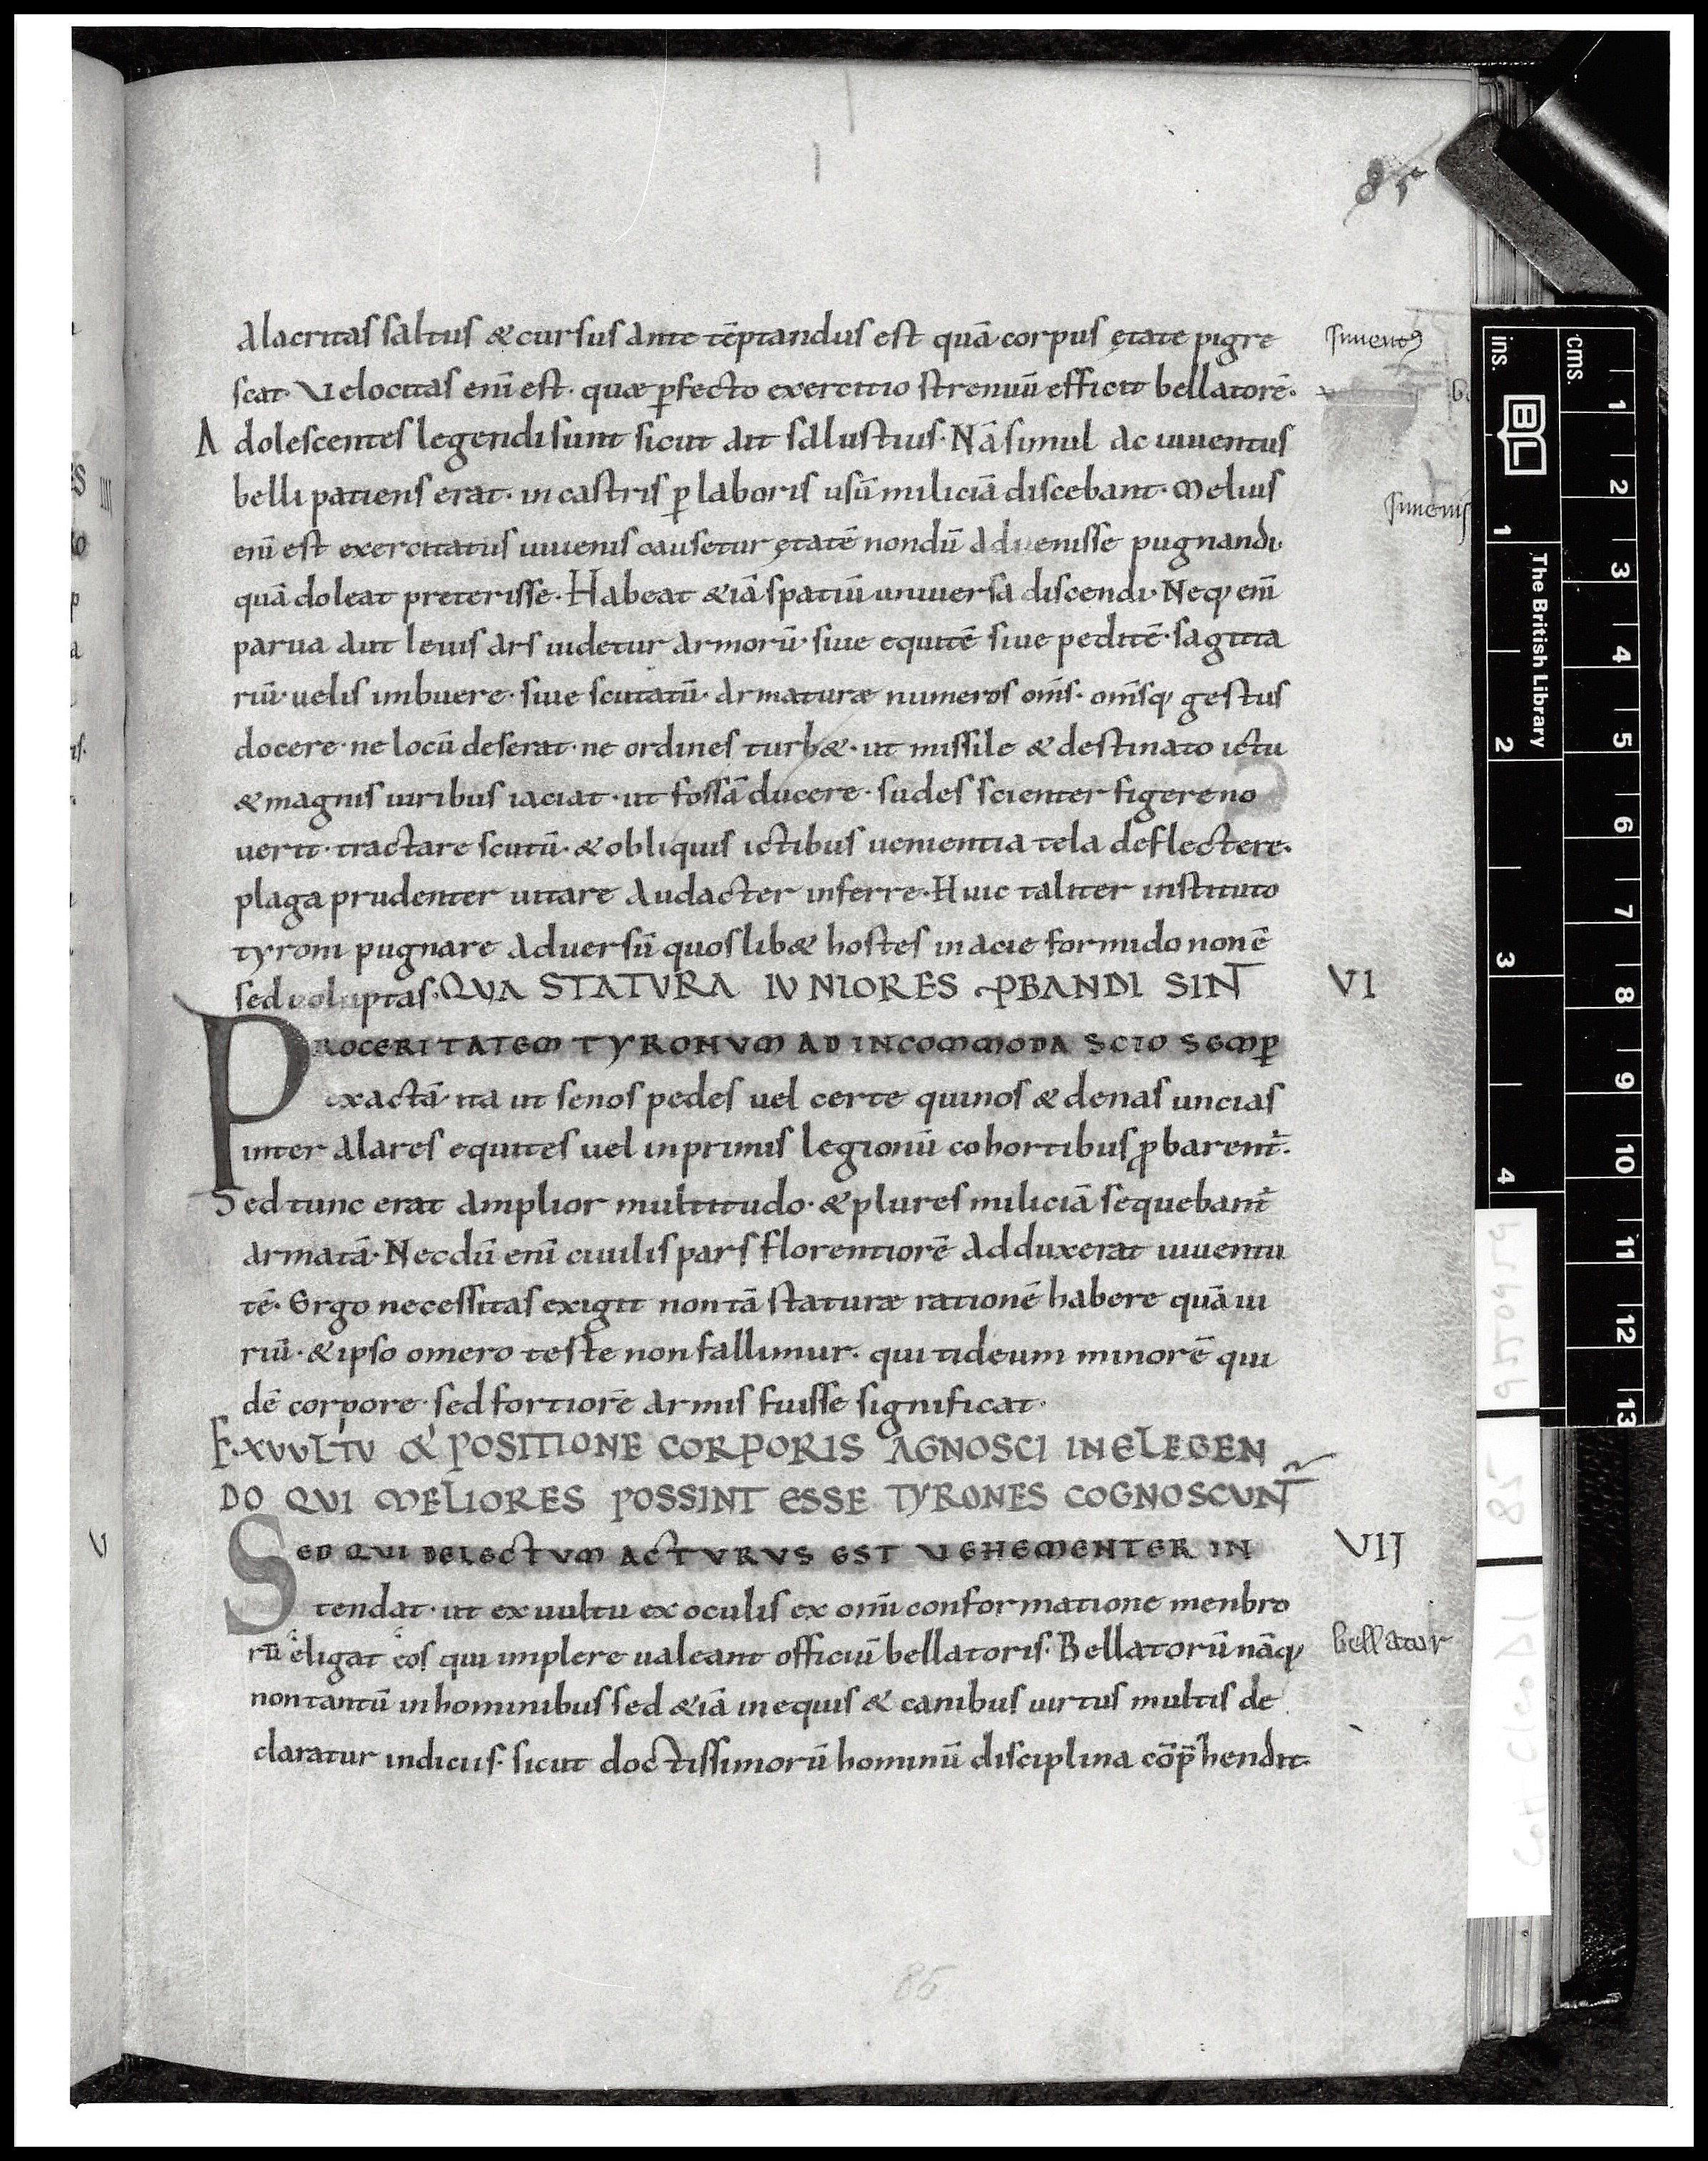 85
alacritas saltus & cursus ante tēptandus est quā corpus ętate pigre
scat. Velocitas enī est. quæ ꝑfecto exercitio strenuū efficit bellatorē.
Adolescentes legendi sunt sicut ait salustius. Nā simul ac iuuentus
belli patiens erat. in castris ꝑ laboris usū miliciā discebant. Melius
enī est exercitatus iuuenis causetur ętatē nondū aduenisse pugnandi.
quā doleat preterisse. Habeat &iā spatiū uniuersa discendi. Neq; enī
parua aut leuis ars uidetur armorū. siue equitē siue peditē. sagitta
riū. uelis imbuere. siue scutatū. armaturæ numeros oms̄. omīsq; gestus
docere. ne locū deserat. ne ordines turb&. ut missile & destinato ictu
& magnis uiribus iaciat. ut fossā ducere. sudes scienter figere no
uerit. tractare scutū. & obliquis ictibus uenientia tela deflectere.
plaga prudenter uitare audacter inferre. Huic taliter instituto
tyroni pugnare aduersū quoslib& hostes in acie formido non ē
sed voluptas. QVA STATVRA IVNIORES ꝒBANDI SINT
VI
PROCERITATEM TYRONVM AD INCOMMODA SCIO SEMꝑ
exactā. ita ut senos pedes uel certe quinos & denas uncias
inter alares equites uel in primis legionū cohortibus ꝓbarent̄.
Sed tunc erat amplior multitudo. & plures miliciā sequebant̄
armatā. Necdū enī ciuilis pars florentiorē adduxerat iuuentu
tē. Ergo necessitas exigit non tā staturæ rationē habere quā ui
riū. & ipso omero teste non fallimur. qui tideum minorē qui
dē corpore. sed fortiorē armis fuisse significat.
EX VVLTV & POSITIONE CORPORIS AGNOSCI IN ELEGEN
DO QVI MELIORES POSSINT ESSE TYRONES COGNOSCVNT
SED QVI DELECTVM ACTVRVS EST VEHEMENTER IN
VIJ
tendat. ut ex uultu ex oculis ex omī conformatione menbro
rū eligat eos qui implere ualeant officiū bellatoris. Bellatorū nāq;
bellator
non tantū in hominibus sed &iā in equis & canibus uirtus multis de
claratur indiciis. sicut doctissimorū hominū disciplina cōp̄hendit.
iuuent9
iuuenis
IIII
V
86
ins.
cms.
BL
The British Library
1
2
3
4
1
2
3
4
5
6
7
8
9
10
11
12
13
85
Cott Cleo DI